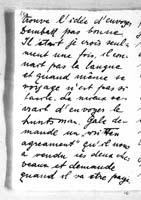 trouve l'idée d'envoyer
Dembatt pas bonne.
Il était je crois seule-
ment une fois, il con-
nait pas la langue
et quand même ce
voyage n'est pas si
facile. Le mieux se-
rait d'envoyer le
huntsman. Gale de-
mande un "written
agreement" qu'il nous
a vendu les deux che-
vaux et demande
quand il va être payé